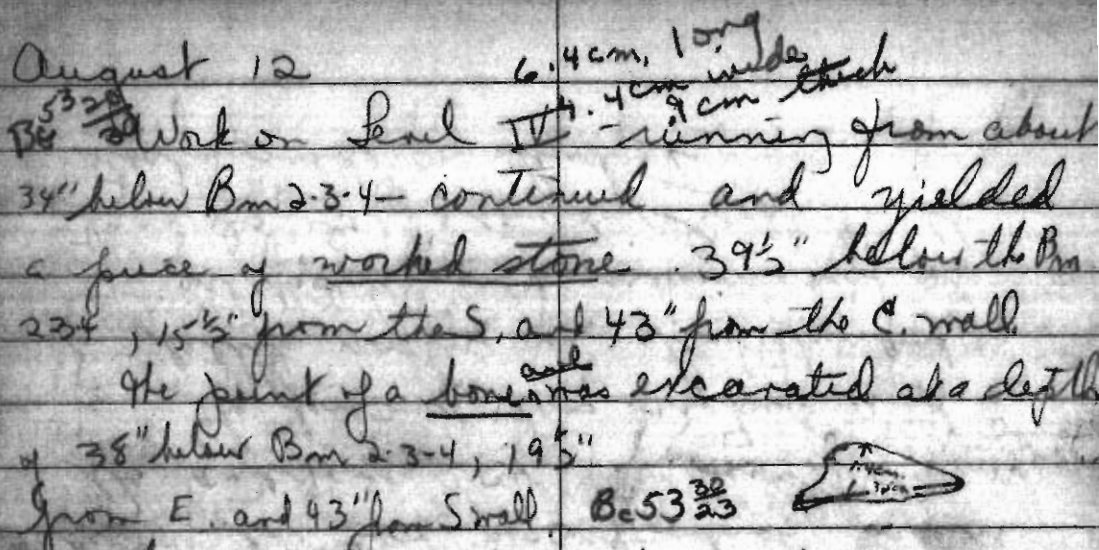 August 12
6.4 cm. long
4.4 cm wide
.9 cm thick
Work on Level IV - running from about
34" below Bm 2-3-4 - continued and yielded
a piece of worked stone. 39½" below the Bm
234, 15½" from the S. and 43" from the E. wall
The point of a bone awl was excavated at a depth
of 38" below Bm 2-3-4, 19.5"
from E. and 43" from S wall Bc53 30/23